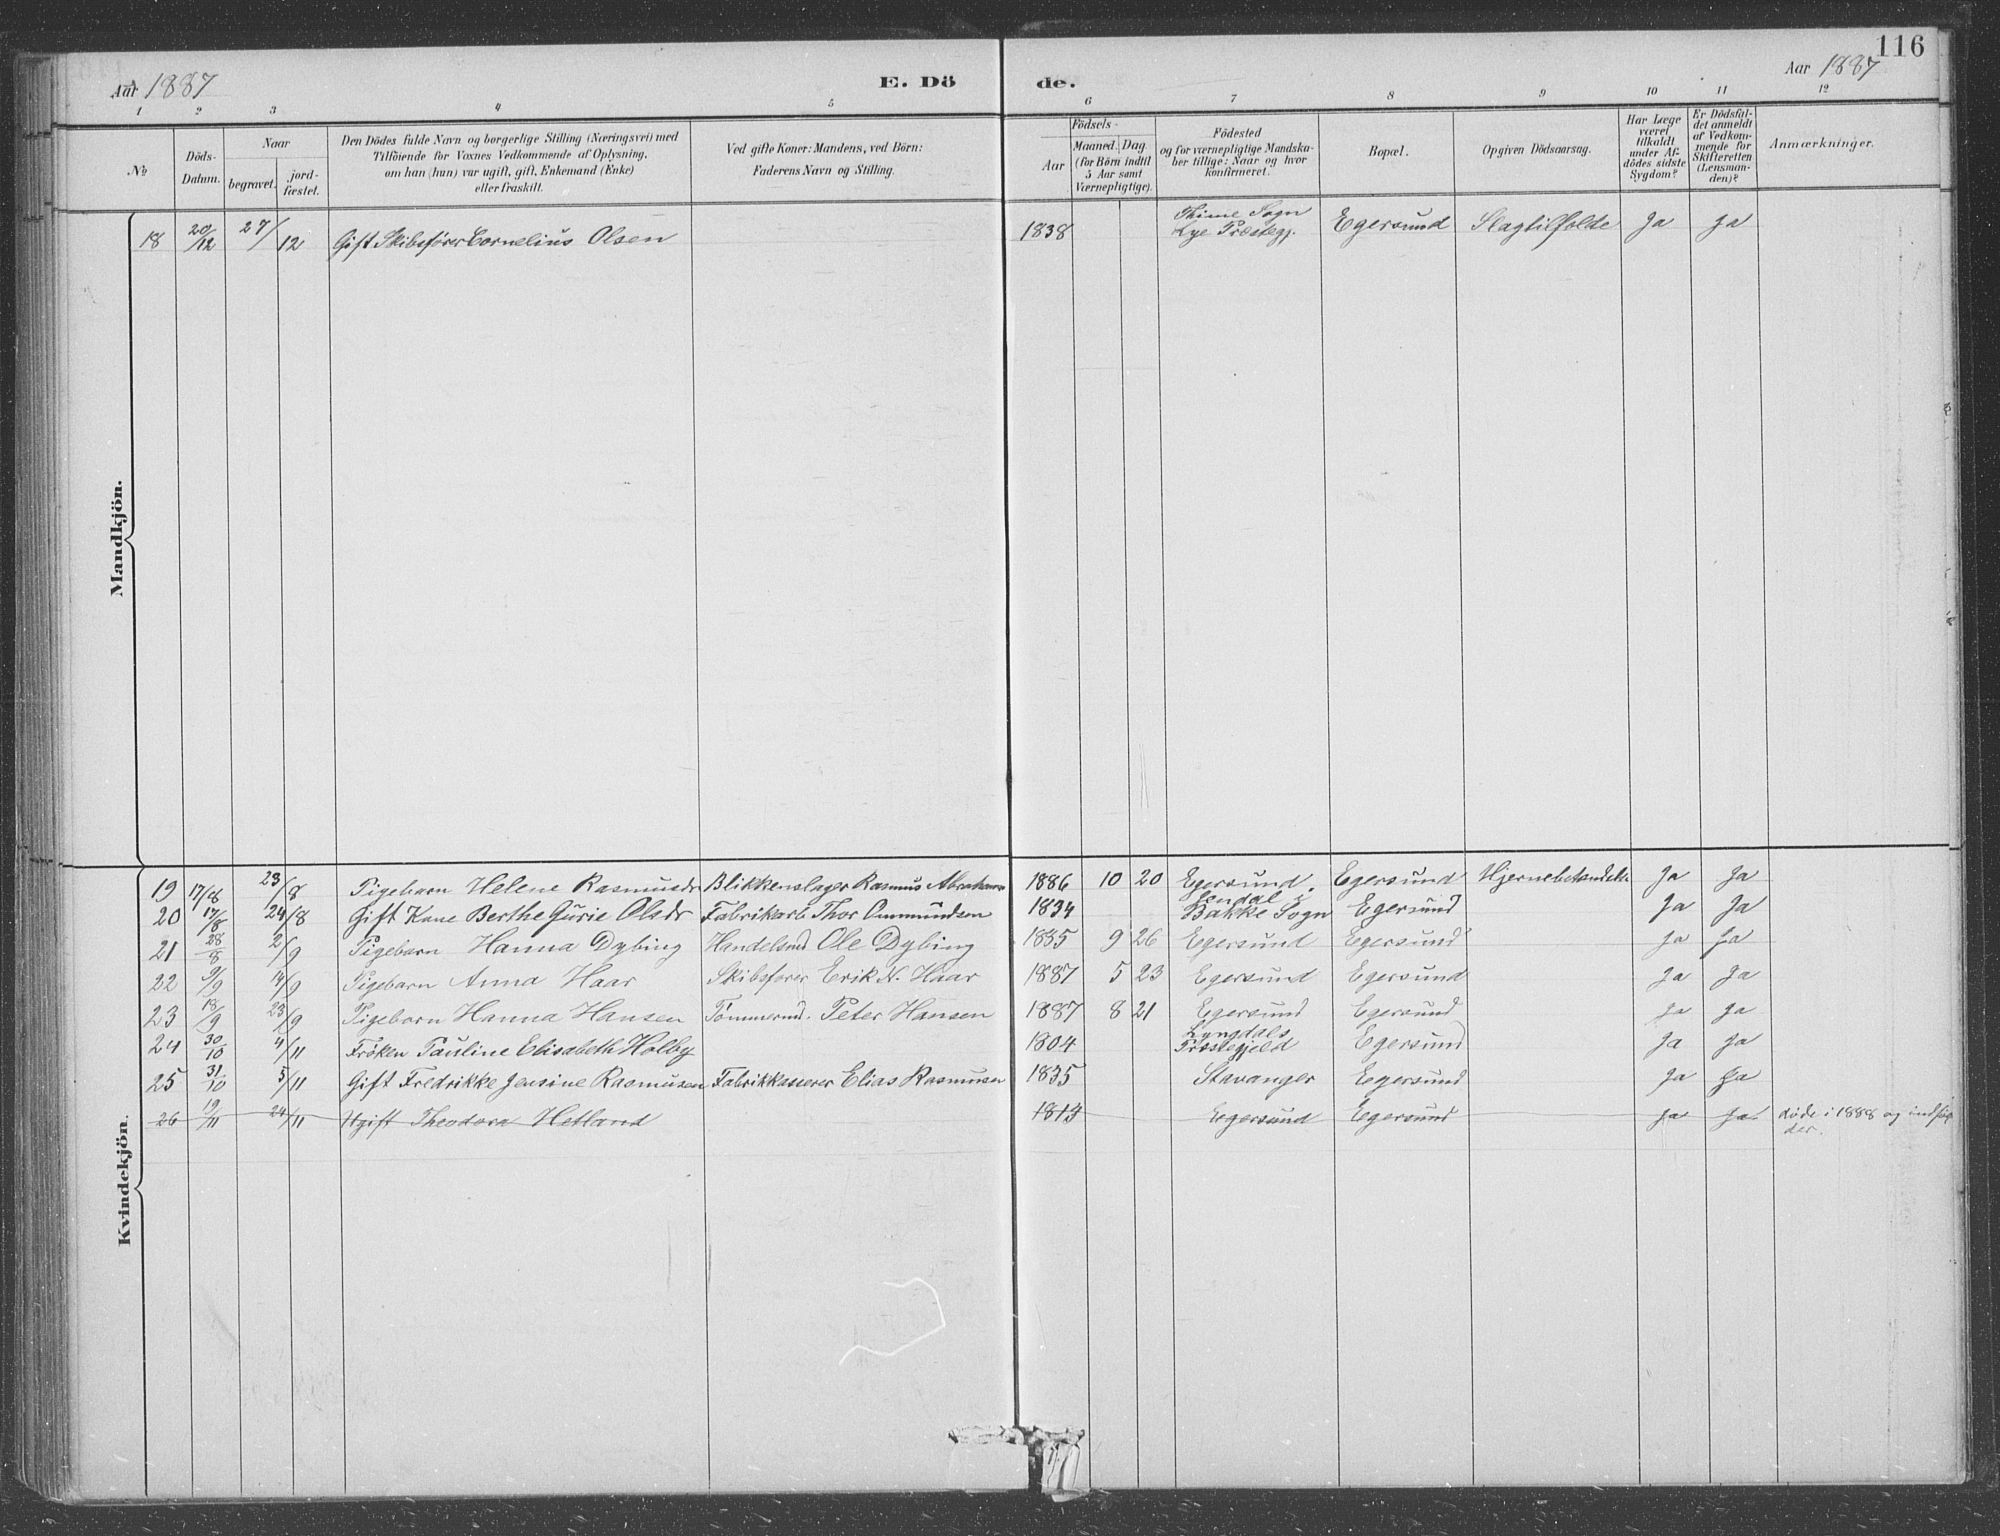 116
Aar 1887
E. Dö
de.
Aar 1887
1 2 3 4 5 6 7 8 9 10 11 12
No
Döds-
Datum.
Naar
begravet. jord-
fæstet.
Den Dödes fulde Navn og borgerlige Stilling (Næringsvei) med
Tilföiende for Voxnes Vedkommende af Oplysning,
om han (hun) var ugift, gift, Enkemand (Enke)
eller fraskilt.
Ved gifte Koner: Mandens, ved Börn:
Faderens Navn og Stilling.
Födsels-
Aar
Maaned. Dag
(for Börn indtil
5 Aar samt
Værnepligtige).
Födested
og for værnepligtige Mandska-
ber tillige: Naar og hvor
konfirmeret.
Bopæl.
Opgiven Dödsaarsag.
Har Læge
været
tilkaldt
under Af-
dödes sidste
Sygdom?
Er Dödsfal-
det anmeldt
af Vedkom-
mende for
Skifteretten
(Lensman-
den)?
Anmærkninger.
Mandkjön.
18 20/12 27/12 Gift Skibsfører Cornelius Olsen 1838 Thime Sogn
Lye Præstegj. Egersund Slagtilfælde Ja Ja
Kvindekjön.
19 17/8 23/8 Pigebarn Helene Rasmusdr Blikkenslager Rasmus Abrahams 1886 10 20 Egersund. Egersund Hjernebetændelse Ja Ja
20 17/8 24/8 Gift Kone Berthe Gurie Olsdr Fabrikarb Thor Ommundsen 1834 Bakke Sogn Egersund Ja Ja
21 28/8 2/9 Pigebarn Hanna Dybing Handelsmd Ole Dybing 1885 9 26 Egersund Egersund Ja Ja
22 9/9 14/9 Pigebarn Anna Haar Skibsfører Erik N. Haar 1887 5 23 Egersund Egersund Ja Ja
23 18/9 23/9 Pigebarn Hanna Hansen Tømmermd. Peter Hansen 1887 8 21 Egersund Egersund Ja Ja
24 30/10 4/11 Frøken Pauline Elisabeth Holby 1804 Lyngdals
Præstegjeld Egersund Ja Ja
25 31/10 5/11 Gift Fredrikke Jensine Rasmusen Fabrikkasserer Elias Rasmusen 1835 Stavanger Egersund Ja Ja
26 19/11 24/11 Ugift Theodora Hetland 1813 Egersund Egersund Ja Ja. døde i 1888 og indført
der.